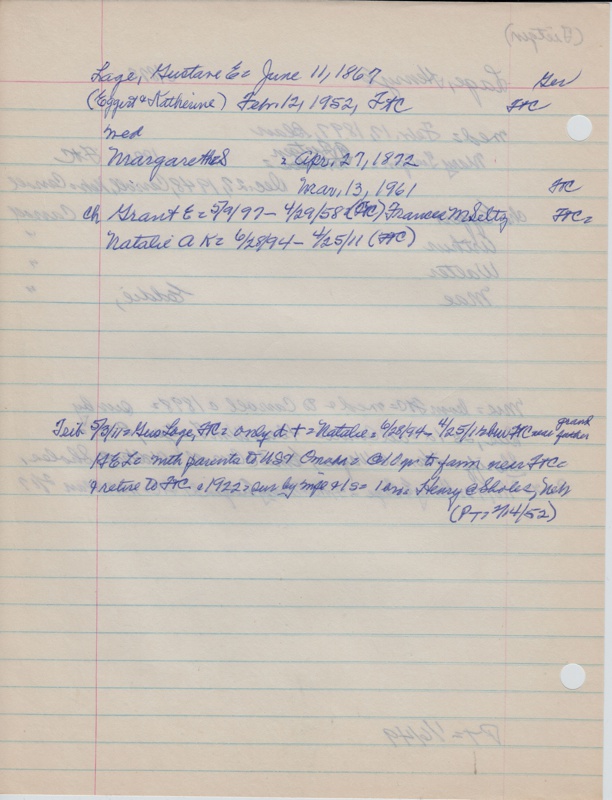 Lage, Gustave E = June 11, 1867 Ger
(Eggert & Katherine) Feb. 12, 1952, FtC FtC
med
Margarethe S = Apr. 27, 1872
Mar. 13, 1961 FtC
Ch Grant E = 5/9/97 - 4/29/58 (FtC) Frances M Seltz FtC =
Natalie A K = 6/28/94 - 4/25/11 (FtC)
Trib 5/3/11 = Gus Lage, FtC = only d + = Natalie = 6/28/94 - 4/25/11 = bur FtC near grand
GEL = with parents to US + Omaha = @ 10 yr to farm near FtC =
& retire to FtC = 1922 = sur by mge + 1 s = 1 bro = Henry @ Sholes, Neb
(PT = 2/14/52)